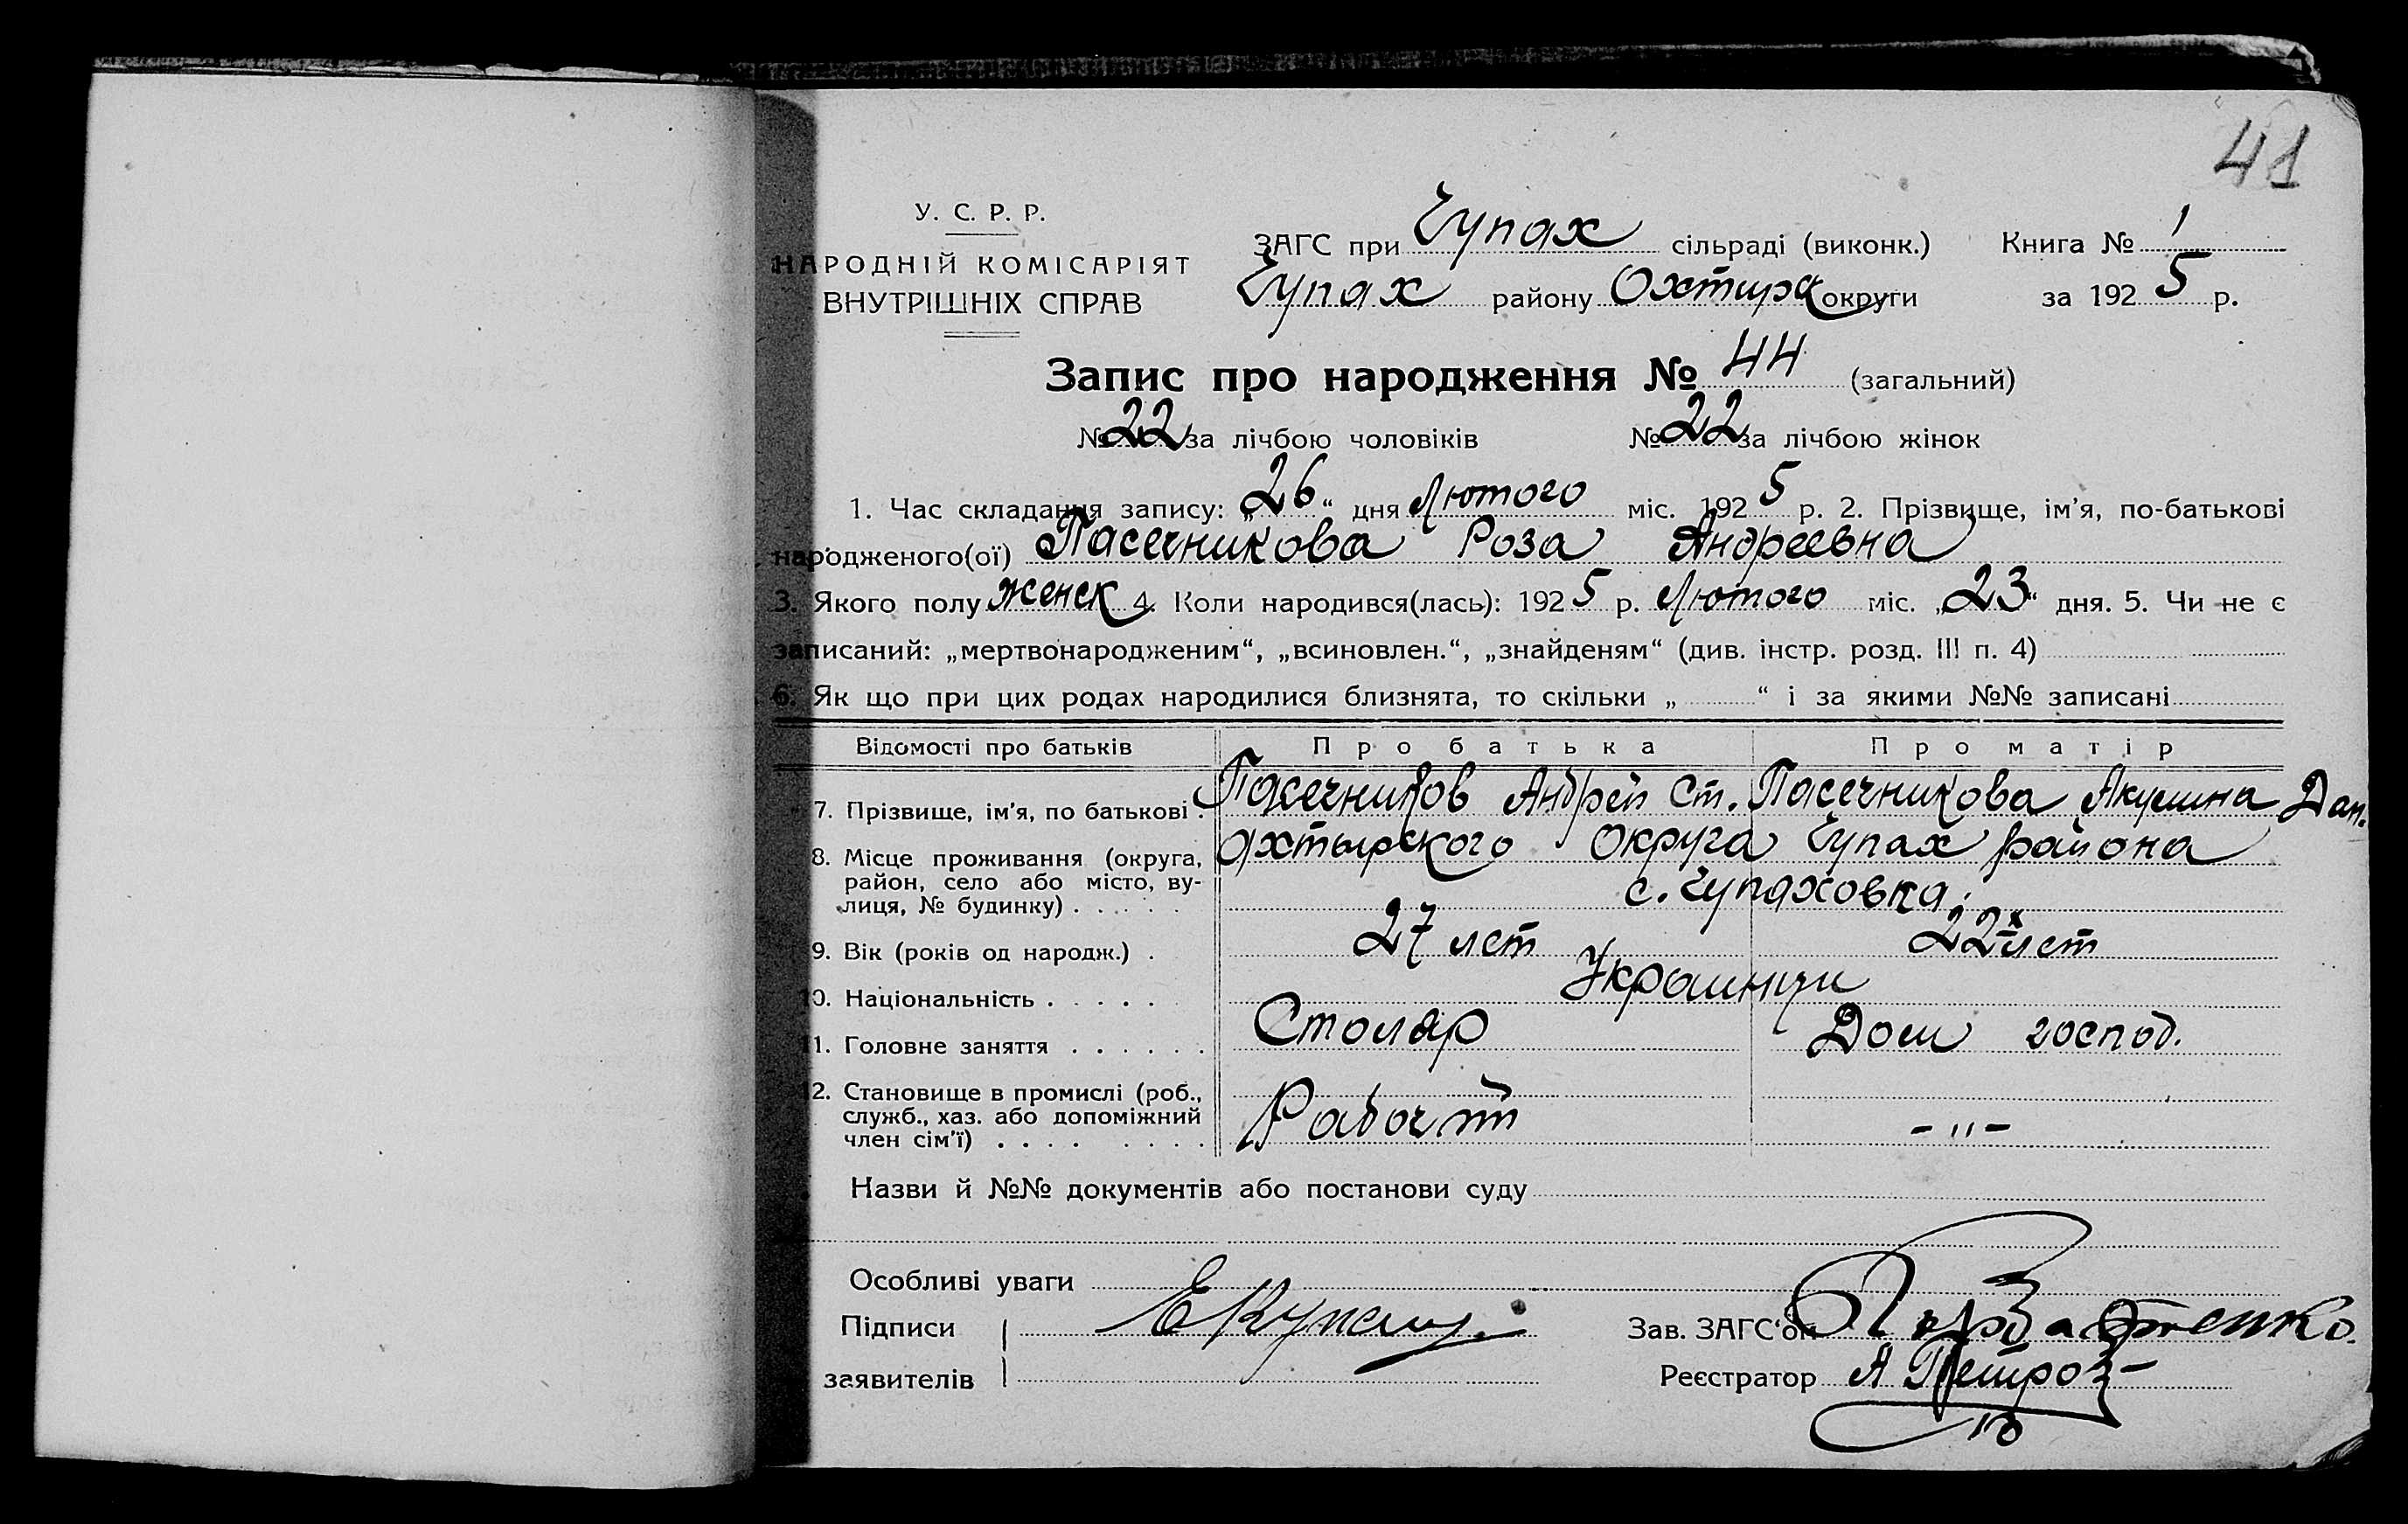 41
У. С. Р. Р.
НАРОДНІЙ КОМІСАРІЯТ
ВНУТРІШНІХ СПРАВ
ЗАГС при Чупах сільраді (виконк.) Книга № 1
Чупах району Охтирс округи за 1925 р.
Запис про народження № 44 (загальний)
№ 22 за лічбою чоловіків № 22 за лічбою жінок
1. Час складання запису: „26“ дня Лютого міс. 1925 р. 2. Прізвище, ім'я, по-батькові
народженого(ої) Пасечникова Роза Андреевна
3. Якого полу женск 4. Коли народився(лась): 1925 р. Лютого міс. „23“ дня. 5. Чи не є
записаний: „мертвонародженим“, „всиновлен.“, „знайденям“ (див. інстр. розд. III п. 4)
6. Як що при цих родах народилися близнята, то скільки „ “ і за якими №№ записані
Відомості про батьків Про батька Про матір
7. Прізвище, ім'я, по батькові . Пасечников Андрей Ст. Пасечникова Акулина Дан.
8. Місце проживання (округа, район, село або місто, вулиця, № будинку) . . . . . Охтырского Округа Чупах района
с. Чупаховка.
9. Вік (років од народж.) . 27 лет 22х лет
10. Національність . . . . . Украинци
11. Головне заняття . . . . . . Столяр Дом господ.
12. Становище в промислі (роб., служб., хаз. або допоміжний член сім'ї) . . . . . . . . Рабочий -"-
Назви й №№ документів або постанови суду
Особливі уваги
Підписи
заявителів
Зав. ЗАГС'ом
Реєстратор А Петров